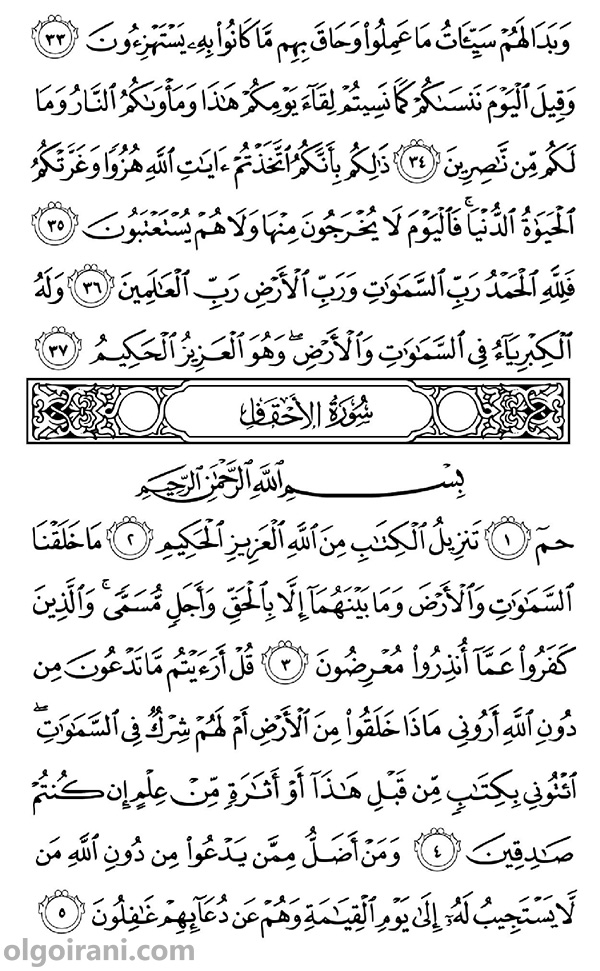 وَبَدَا لَهُمۡ سَيِّـَٔاتُ مَا عَمِلُواْ وَحَاقَ بِهِم مَّا كَانُواْ بِهِۦ يَسۡتَهۡزِءُونَ ٣٣
وَقِيلَ ٱلۡيَوۡمَ نَنسَىٰكُمۡ كَمَا نَسِيتُمۡ لِقَآءَ يَوۡمِكُمۡ هَٰذَا وَمَأۡوَىٰكُمُ ٱلنَّارُ وَمَا
لَكُم مِّن نَّٰصِرِينَ ٣٤ ذَٰلِكُم بِأَنَّكُمُ ٱتَّخَذۡتُمۡ ءَايَٰتِ ٱللَّهِ هُزُوٗا وَغَرَّتۡكُمُ
ٱلۡحَيَوٰةُ ٱلدُّنۡيَاۚ فَٱلۡيَوۡمَ لَا يُخۡرَجُونَ مِنۡهَا وَلَا هُمۡ يُسۡتَعۡتَبُونَ ٣٥
فَلِلَّهِ ٱلۡحَمۡدُ رَبِّ ٱلسَّمَٰوَٰتِ وَرَبِّ ٱلۡأَرۡضِ رَبِّ ٱلۡعَٰلَمِينَ ٣٦ وَلَهُ
ٱلۡكِبۡرِيَآءُ فِي ٱلسَّمَٰوَٰتِ وَٱلۡأَرۡضِۖ وَهُوَ ٱلۡعَزِيزُ ٱلۡحَكِيمُ ٣٧
سُورَةُ الأَحۡقَافِ
بِسۡمِ ٱللَّهِ ٱلرَّحۡمَٰنِ ٱلرَّحِيمِ
حمٓ ١ تَنزِيلُ ٱلۡكِتَٰبِ مِنَ ٱللَّهِ ٱلۡعَزِيزِ ٱلۡحَكِيمِ ٢ مَا خَلَقۡنَا
ٱلسَّمَٰوَٰتِ وَٱلۡأَرۡضَ وَمَا بَيۡنَهُمَآ إِلَّا بِٱلۡحَقِّ وَأَجَلٖ مُّسَمّٗىۚ وَٱلَّذِينَ
كَفَرُواْ عَمَّآ أُنذِرُواْ مُعۡرِضُونَ ٣ قُلۡ أَرَءَيۡتُم مَّا تَدۡعُونَ مِن
دُونِ ٱللَّهِ أَرُونِي مَاذَا خَلَقُواْ مِنَ ٱلۡأَرۡضِ أَمۡ لَهُمۡ شِرۡكٞ فِي ٱلسَّمَٰوَٰتِۖ
ٱئۡتُونِي بِكِتَٰبٖ مِّن قَبۡلِ هَٰذَآ أَوۡ أَثَٰرَةٖ مِّنۡ عِلۡمٍ إِن كُنتُمۡ
صَٰدِقِينَ ٤ وَمَنۡ أَضَلُّ مِمَّن يَدۡعُواْ مِن دُونِ ٱللَّهِ مَن
لَّا يَسۡتَجِيبُ لَهُۥٓ إِلَىٰ يَوۡمِ ٱلۡقِيَٰمَةِ وَهُمۡ عَن دُعَآئِهِمۡ غَٰفِلُونَ ٥
olgoirani.com